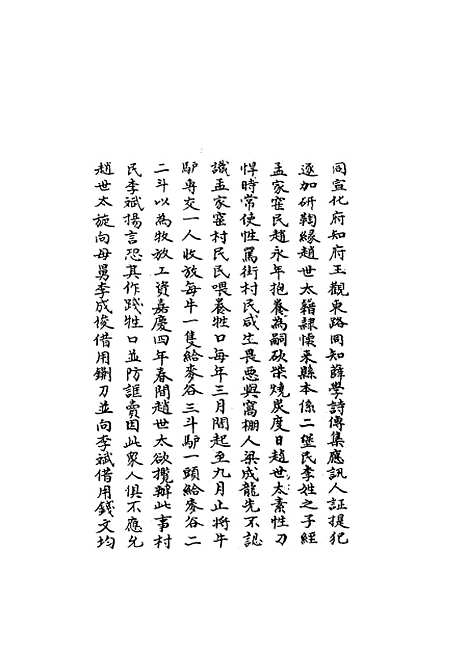 同宣化府知府王觀東路同知薛學詩傳集應訊人証提犯
逐加研鞫緣趙世太籍隸懷來縣本係二堡民李姓之子經
孟家窑民趙永年抱養為嗣砍柴燒炭度日趙世太素性刁
悍時常使性罵街村民咸生畏惡與窩棚人梁成龍先不認
識孟家窑村民民喂養牲口每年三月間起至九月止將牛
驢専交一人收放每牛一隻給麥谷三斗驢一頭給麥谷二
二斗以為牧放工資嘉慶四年春間趙世太欲攬辦此事村
民李斌揚言恐其作踐牲口並防誆賣因此衆人俱不應允
趙世太旋向母舅李成俊借用鍘刀並向李斌借用錢文均